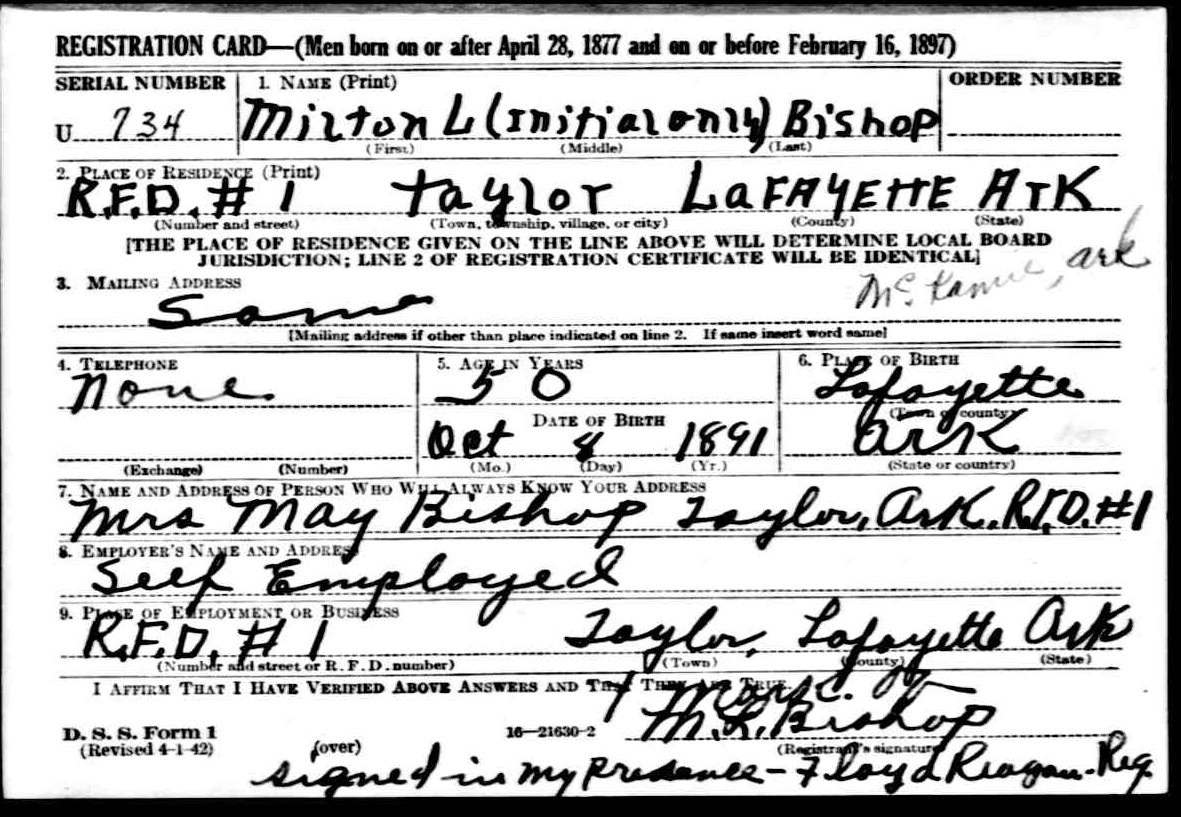 REGISTRATION CARD—(Men born on or after April 28, 1877 and on or before February 16, 1897)
SERIAL NUMBER 1. NAME (Print) ORDER NUMBER
U 734 Milton L (Initial only) Bishop
(First) (Middle) (Last)
2. PLACE OF RESIDENCE (Print)
R.F.D. # 1 Taylor LaFAYETTE ARK
(Number and street) (Town, township, village, or city) (County) (State)
[THE PLACE OF RESIDENCE GIVEN ON THE LINE ABOVE WILL DETERMINE LOCAL BOARD
JURISDICTION; LINE 2 OF REGISTRATION CERTIFICATE WILL BE IDENTICAL]
3. MAILING ADDRESS
Same Mc Kamie, ark
[Mailing address if other than place indicated on line 2. If same insert word same]
4. TELEPHONE 5. AGE IN YEARS 6. PLACE OF BIRTH
None. 50 Lafayette
(Town or county)
DATE OF BIRTH
Oct 8 1891 Ark
(Exchange) (Number) (Mo.) (Day) (Yr.) (State or country)
7. NAME AND ADDRESS OF PERSON WHO WILL ALWAYS KNOW YOUR ADDRESS
Mrs May Bishop Taylor, Ark. R.F.D. #1
8. EMPLOYER'S NAME AND ADDRESS
Self Employed
9. PLACE OF EMPLOYMENT OR BUSINESS
R.F.D. # 1 Taylor, Lafayette Ark
(Number and street or R. F. D. number) (Town) (County) (State)
I AFFIRM THAT I HAVE VERIFIED ABOVE ANSWERS AND THAT THEY ARE TRUE.
Mark of
D. S. S. Form 1 16—21630-2 M.L. Bishop
(Revised 4-1-42) (over) (Registrant's signature)
signed in my presence - Floyd Reagan - Reg.